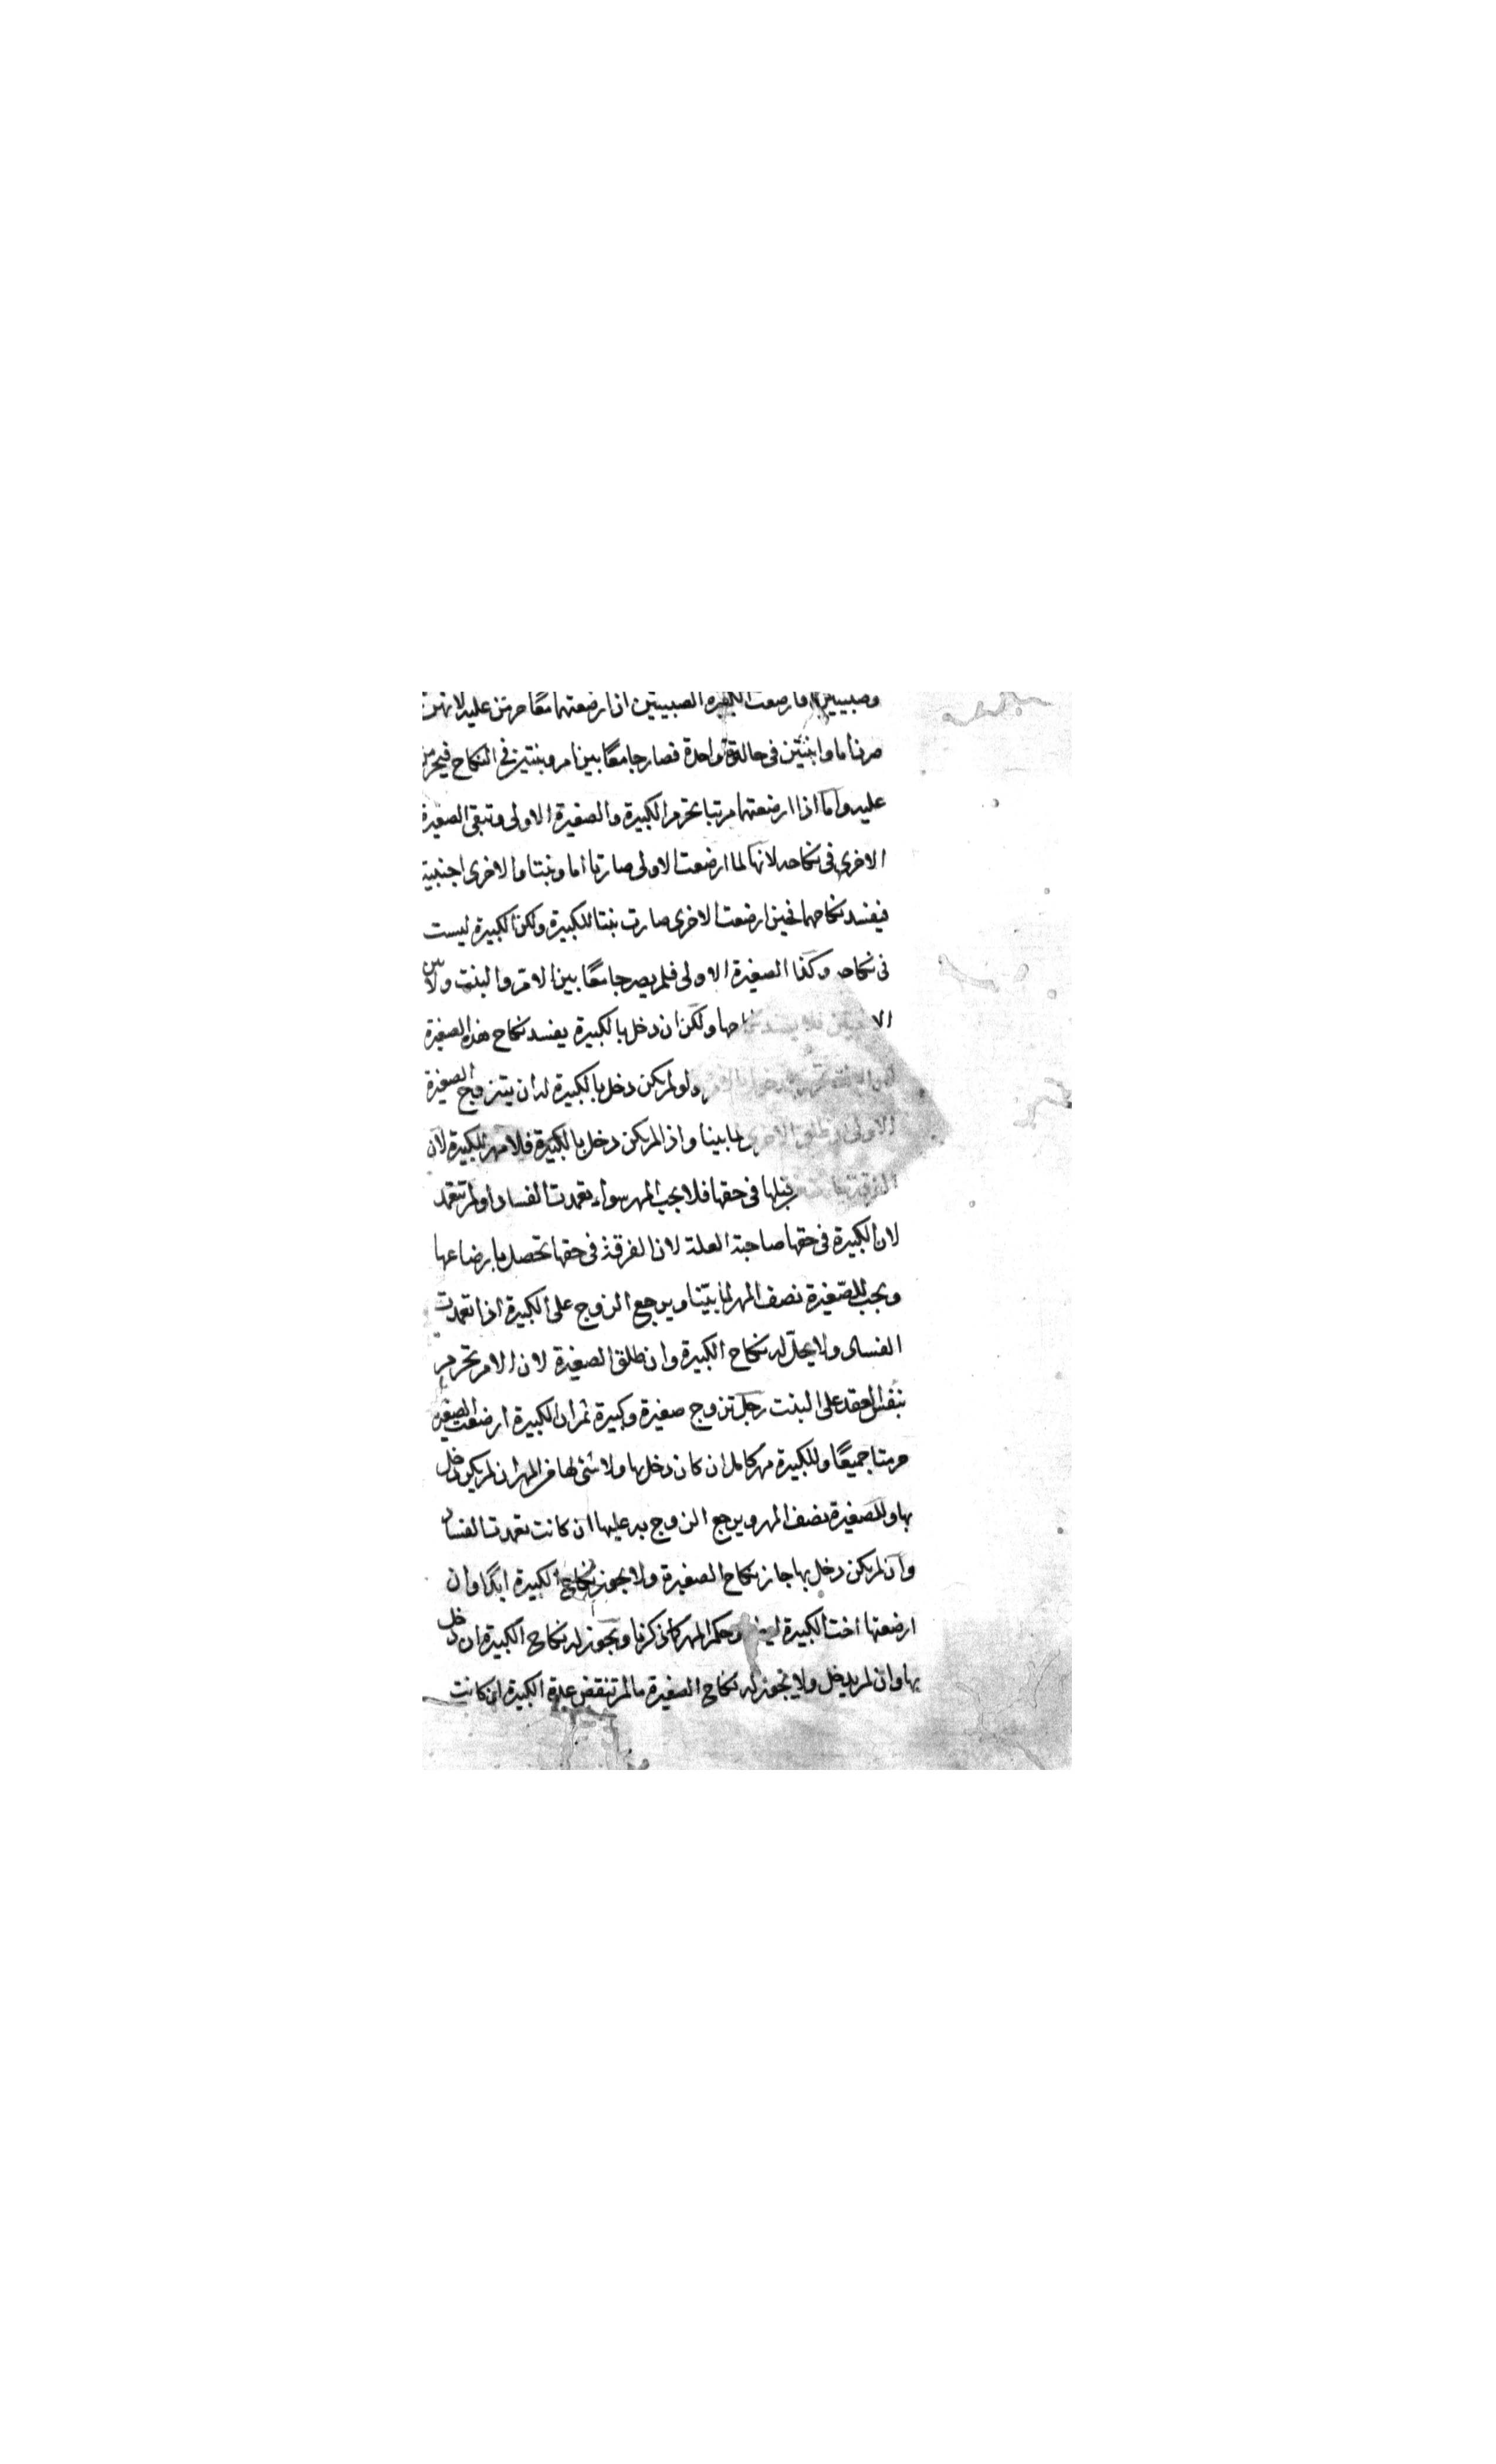 وصبيتين فارضعت الكبيرة الصبيتين ان ارضعتهما معًا حرمن عليه لانهن
صرن اما وابنتين في حالة واحدة فصار جامعًا بين ام وبنتين في النكاح فيحرمن
عليه واما اذا ارضعتهما مرتبا تحرم الكبيرة والصغيرة الاولى وتبقى الصغيرة
الاخرى في نكاحه لانها لما ارضعت الاولى صارتا اما وبنتا والاخرى اجنبية
فيفسد نكاحهما فحين ارضعت الاخرى صارت بنتا للكبيرة ولكن الكبيرة ليست
في نكاحه وكذا الصغيرة الاولى فلم يصر جامعًا بين الام والبنت ولا بين
الاختين فلا يفسد نكاحها ولكن ان دخل بالكبيرة يفسد نكاح هذه الصغيرة
ولو لم يكن دخل بالكبيرة له ان يتزوج الصغيرة
الاولى ان طلق الاخرى لما بينا واذا لم يكن دخل بالكبيرة فلا مهر للكبيرة لان
الفرقة قبلها في حقها فلا يجب المهر سواء تعمدت الفساد او لم تتعمد
لان الكبيرة في حقها صاحبة العلة لان الفرقة في حقها تحصل بارضاعها
ويجب للصغيرة نصف المهر لما بيّنا ويرجع الزوج على الكبيرة اذا تعمدت
الفساد ولا يحلّ له نكاح الكبيرة وان طلق الصغيرة لان الام تحرم
بنفس العقد على البنت رجل تزوج صغيرة وكبيرة ثم ان الكبيرة ارضعت الصغيرة
حرمتا جميعًا وللكبيرة مهر كامل ان كان دخل بها ولا شئ لها من المهر ان لم يكن دخل
بها وللصغيرة نصف المهر ويرجع الزوج به عليها ان كانت تعمدت الفساد
وان لم يكن دخل بها جاز نكاح الصغيرة ولا يجوز نكاح الكبيرة ابدًا وان
ارضعتها اخت الكبيرة وحكم المهر كما ذكرنا ويجوز له نكاح الكبيرة ان دخل
بها وان لم يدخل ولا يجوز له نكاح الصغيرة ما لم تنقض عدة الكبيرة ان كانت